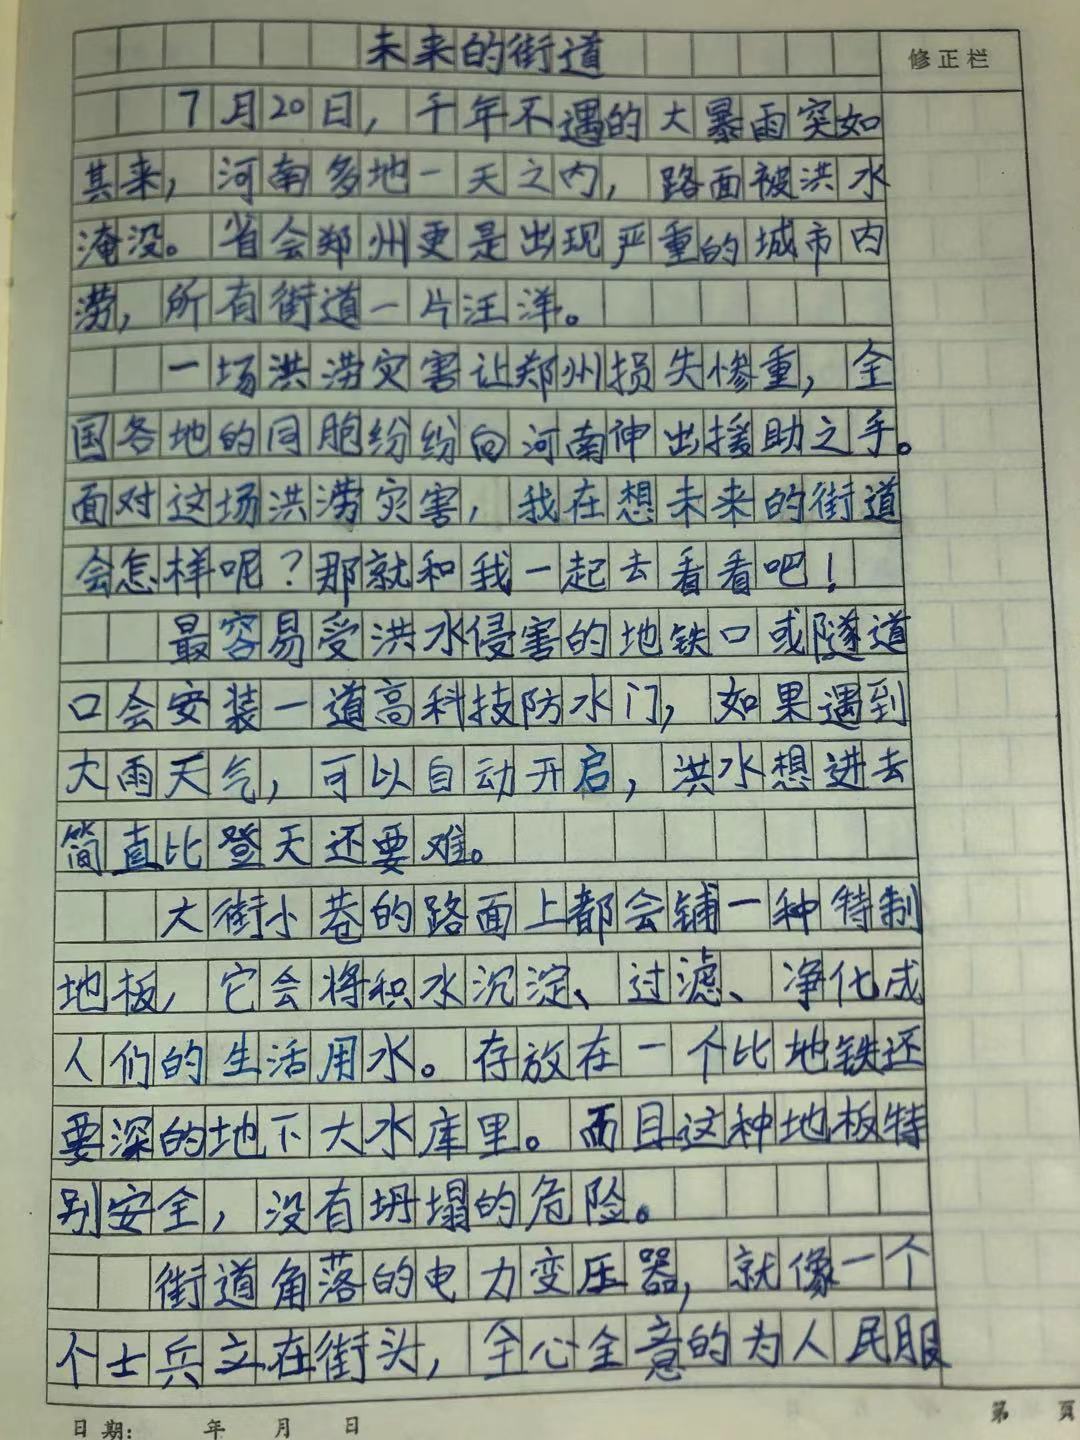 未来的街道
修正栏
7月20日，千年不遇的大暴雨突如
其来，河南多地一天之内，路面被洪水
淹没。省会郑州更是出现严重的城市内
涝，所有街道一片汪洋。
一场洪涝灾害让郑州损失惨重，全
国各地的同胞纷纷向河南伸出援助之手。
面对这场洪涝灾害，我在想未来的街道
会怎样呢？那就和我一起去看看吧！
最容易受洪水侵害的地铁口或隧道
口会安装一道高科技防水门，如果遇到
大雨天气，可以自动开启，洪水想进去
简直比登天还要难。
大街小巷的路面上都会铺一种特制
地板，它会将积水沉淀、过滤、净化成
人们的生活用水。存放在一个比地铁还
要深的地下大水库里。而且这种地板特
别安全，没有坍塌的危险。
街道角落的电力变压器，就像一个
个士兵立在街头，全心全意的为人民服
日期： 年 月 日
第 页